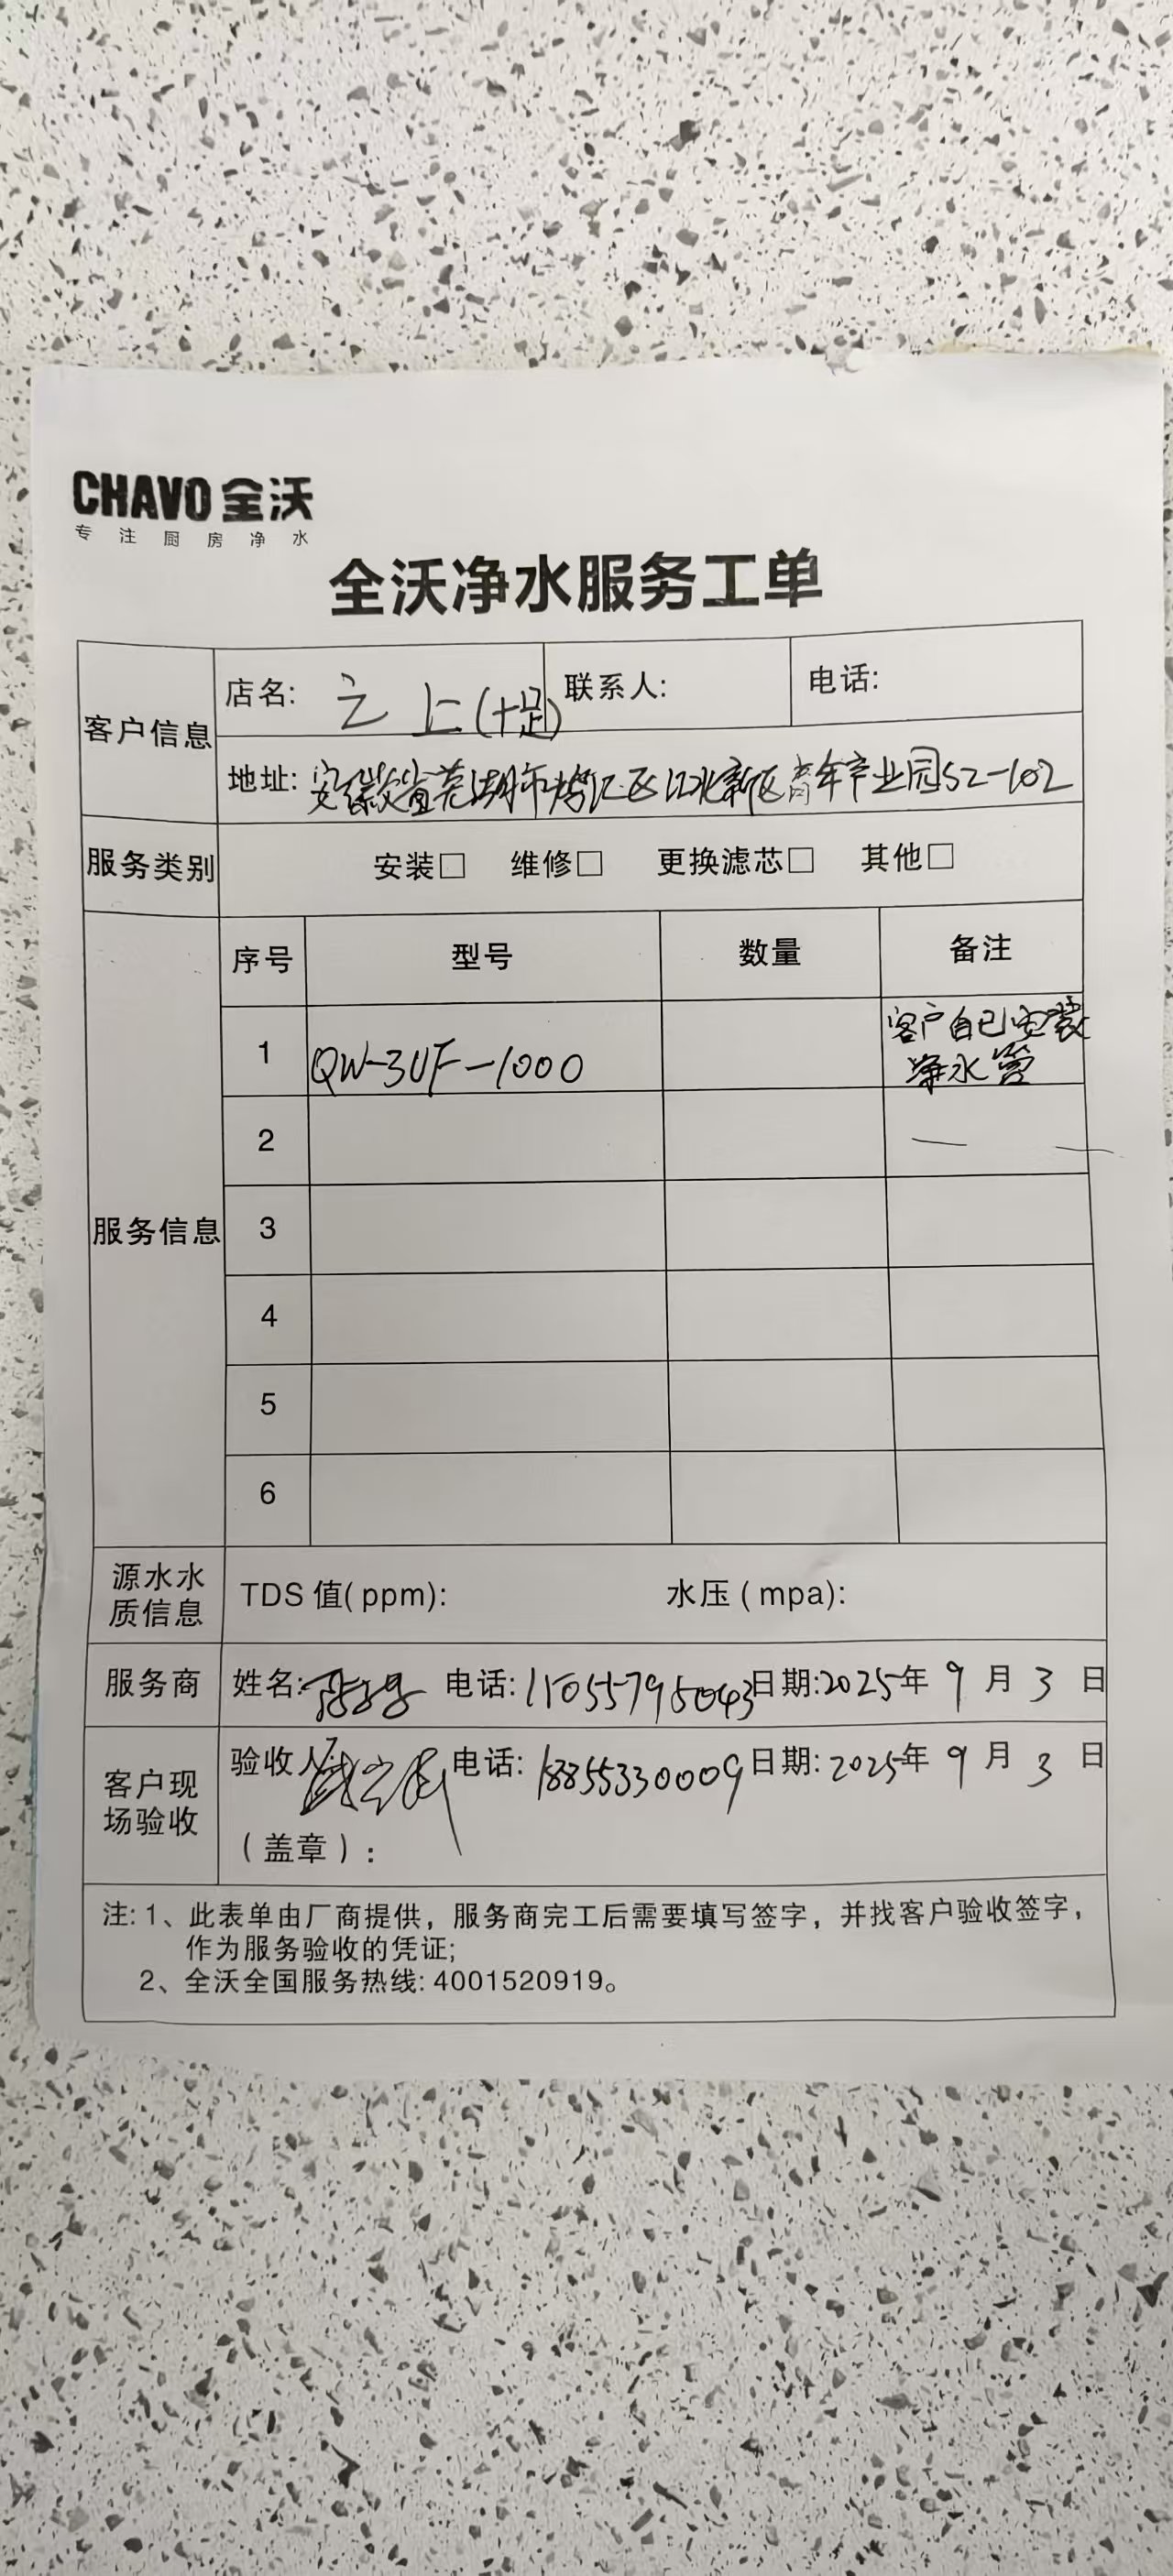 CHAVO 全沃
专注厨房净水
全沃净水服务工单
客户信息
店名: 之上(十足) 联系人: 电话:
地址: 安徽省芜湖市鸠江区江北新区青年产业园S2-102
服务类别 安装□ 维修□ 更换滤芯□ 其他□
服务信息
序号 型号 数量 备注
1 QW-3UF-1000 客户自己安装
净水管
2
3
4
5
6
源水水
质信息
TDS 值(ppm): 水压(mpa):
服务商 姓名: 电话: 日期:2025年9月3日
客户现
场验收
验收人 电话: 18855330009 日期:2025年9月3日
(盖章):
注: 1、此表单由厂商提供, 服务商完工后需要填写签字, 并找客户验收签字,
作为服务验收的凭证;
2、全沃全国服务热线: 4001520919。